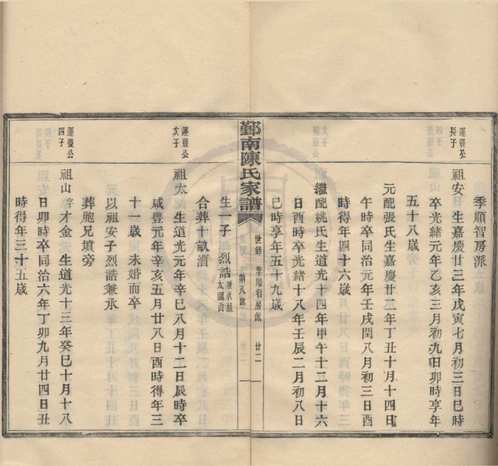 季順智房派
祖安 生嘉慶廿三年戊寅七月初三日巳時
卒光緒元年乙亥三月初九日卯時享年
五十八歲
元配張氏生嘉慶廿二年丁丑十月十四日
午時卒同治元年壬戌閏八月初三日酉
時得年四十六歲
繼配姚氏生道光十四年甲午十二月十六
日酉時卒光緒十八年壬辰二月初八日
巳時享年五十九歲
鄞南陳氏家譜
世錄
廿二
生一子 烈誥
合葬十畝漕
祖太 生道光元年辛巳八月十二日辰時卒
咸豐元年辛亥五月廿八日酉時得年三
十一歲 未婚而卒
以祖安子烈誥兼承
葬胞兄墳旁
祖山 字才金 生道光十三年癸巳十月十八
日卯時卒同治六年丁卯九月廿四日丑
時得年三十五歲